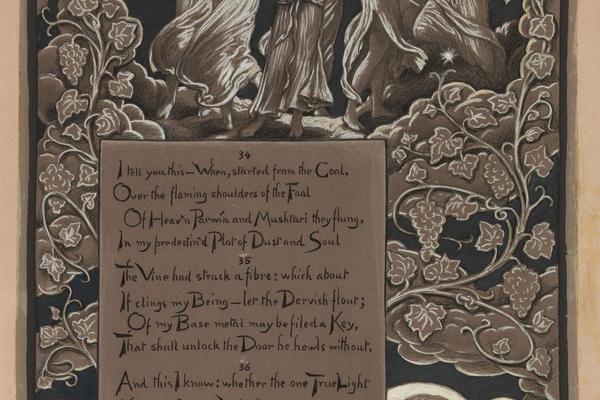 34
I tell you this—When, started from the Goal,
Over the flaming shoulders of the Foal
Of Heav'n Parwín and Mushtari they flung,
In my predestin'd Plot of Dust and Soul
35
The Vine had struck a fibre: which about
If clings my Being—let the Dervish flout;
Of my Base metal may be filed a Key,
That shall unlock the Door he howls without.
36
And this I know: whether the one True Light